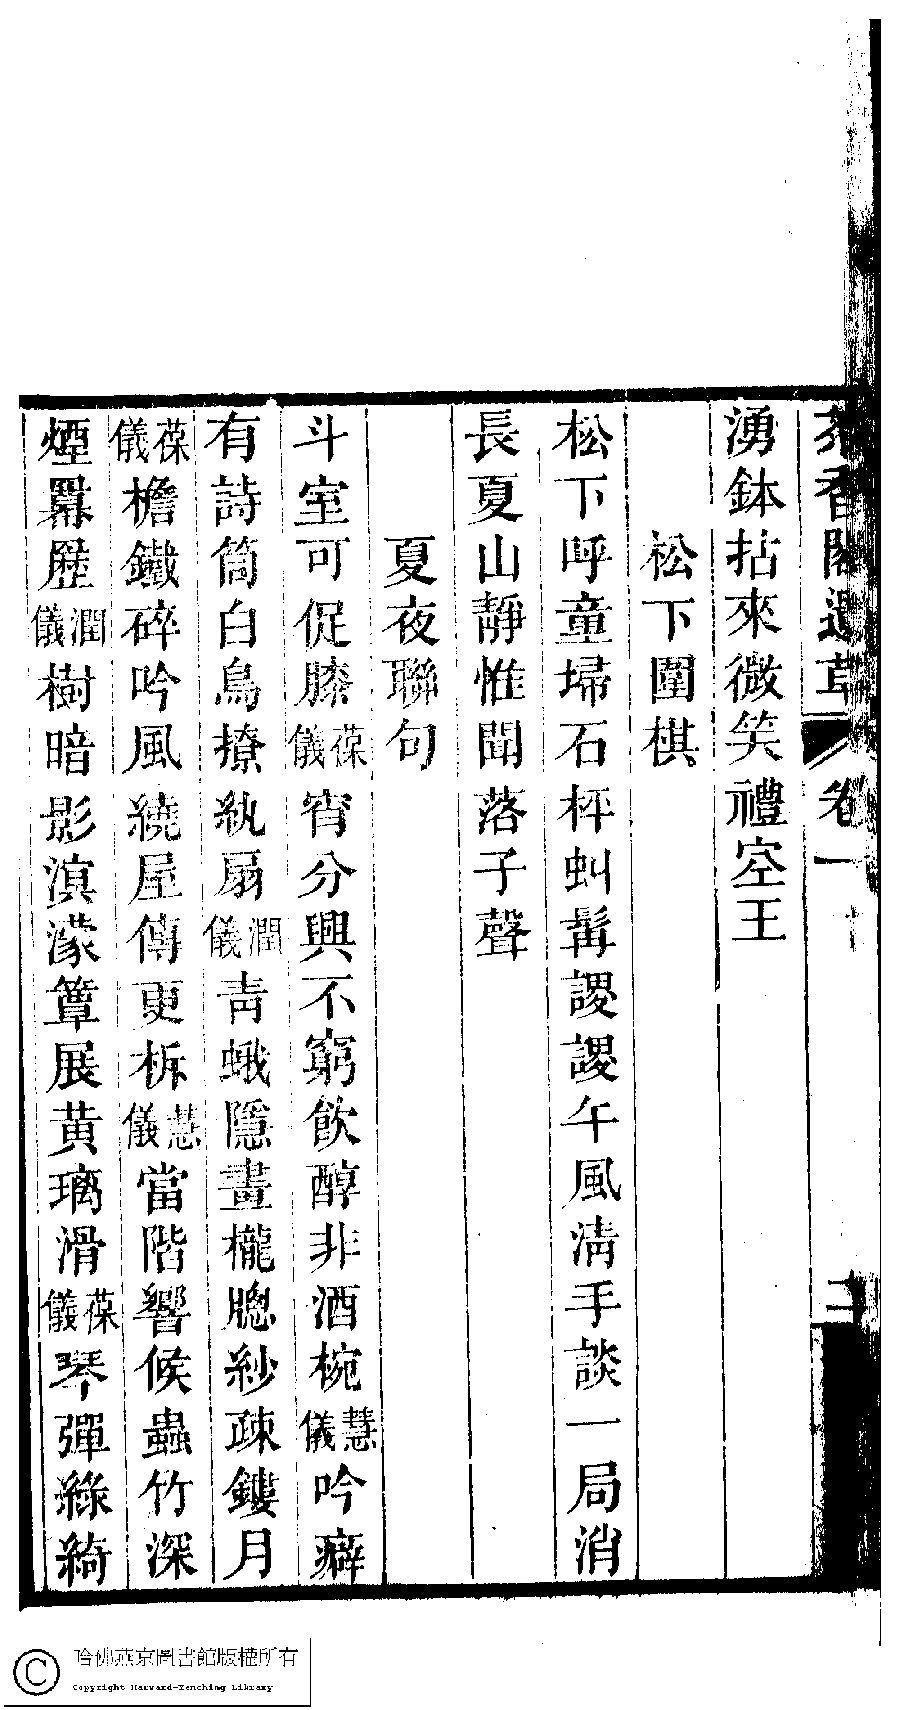 茶香閣遺草 卷一 二
湧鉢拈來微笑禮空王
松下圍棋
松下呼童埽石枰虬髯謖謖午風淸手談一局消
長夏山靜惟聞落子聲
夏夜聯句
斗室可促膝葆儀宵分興不窮飲醇非酒椀慧儀吟癖
有詩筒白鳥撩紈扇潤儀青蛾隱畫櫳牕紗疎鏤月
葆儀檐鐵碎吟風繞屋傳更柝慧儀當階響候蟲竹深
煙羃歷潤儀樹暗影溟濛簟展黃璃滑葆儀琴彈綠綺
哈佛燕京圖書館版權所有
Copyright Harvard-Yenching Library